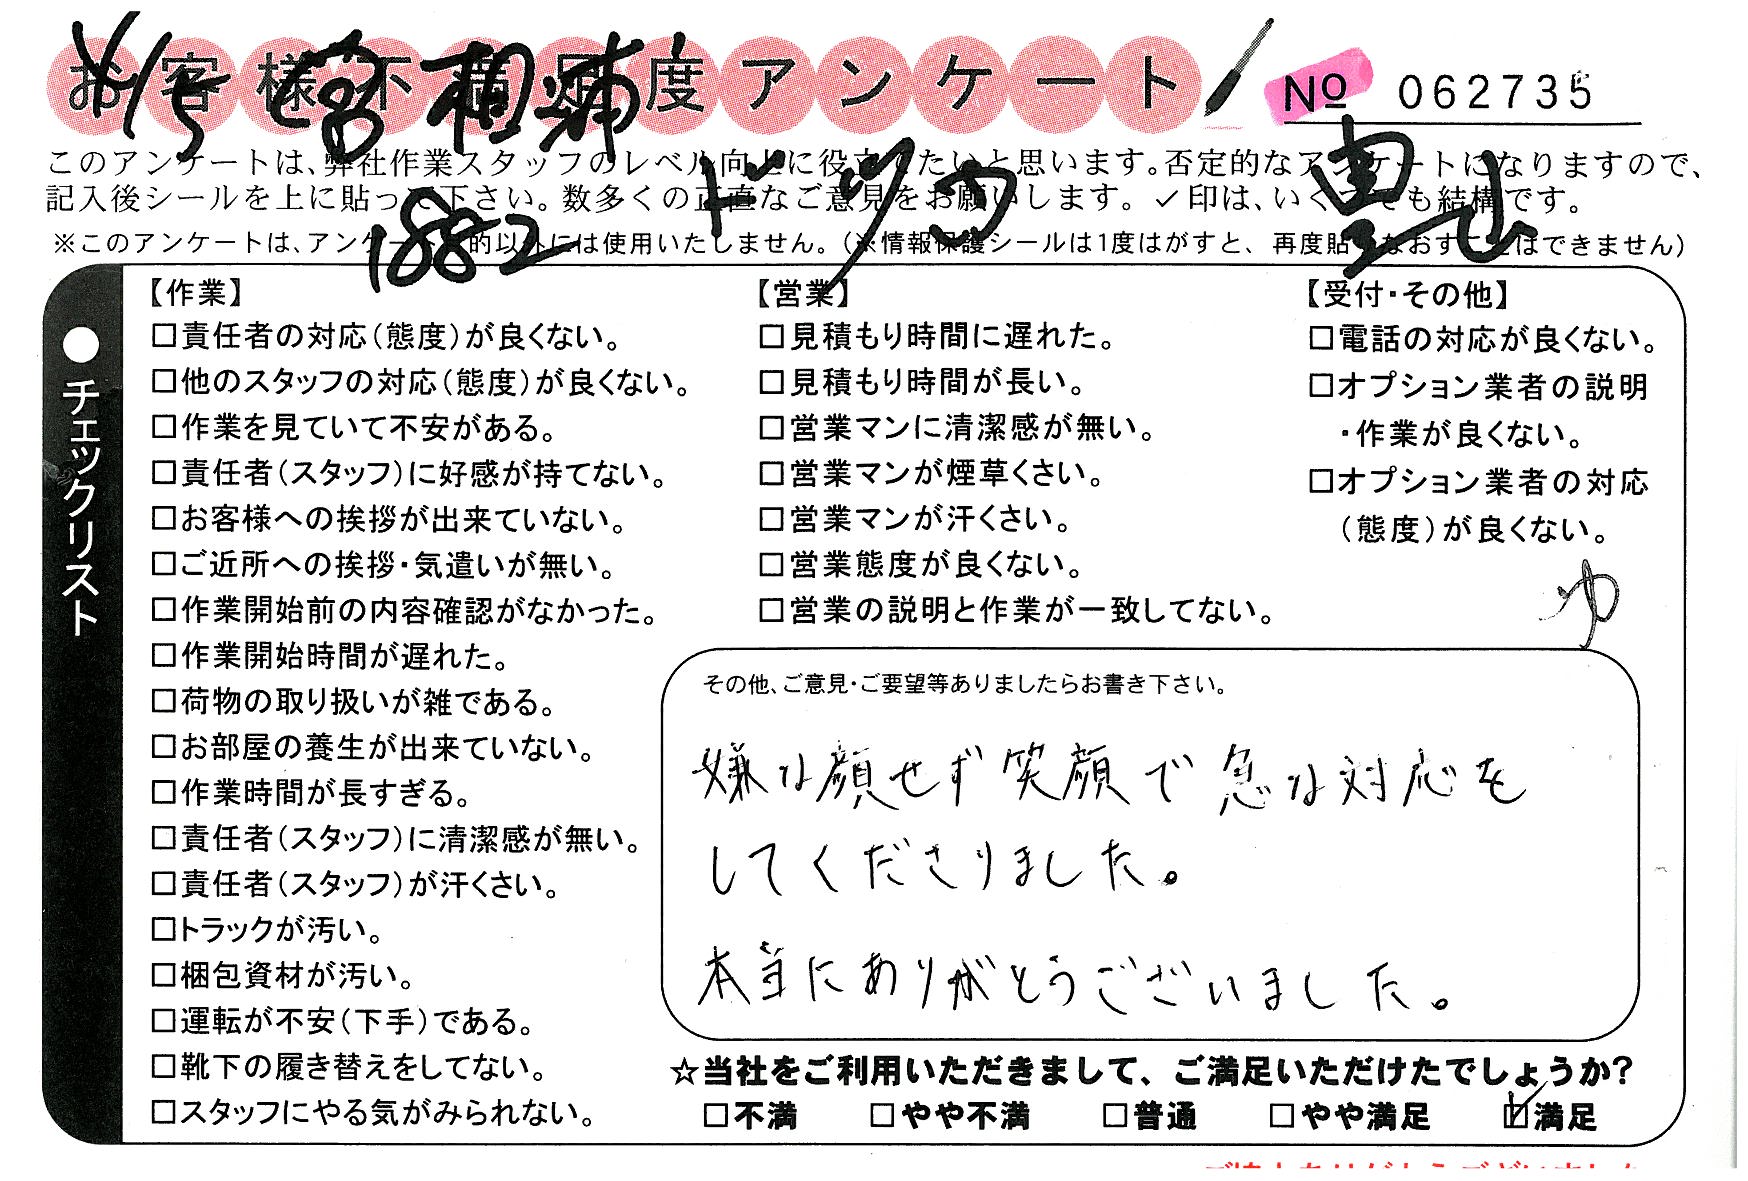 お客様不満足度アンケート
No 062735
4/15 宮 相浦
このアンケートは、弊社作業スタッフのレベル向上に役立てたいと思います。否定的なアンケートになりますので、
記入後シールを上に貼って下さい。数多くの正直なご意見をお願いします。✓印は、いくつでも結構です。
1882
※このアンケートは、アンケート目的以外には使用いたしません。(※情報保護シールは1度はがすと、再度貼りなおすことはできません)
●チェックリスト
【作業】
□責任者の対応(態度)が良くない。
□他のスタッフの対応(態度)が良くない。
□作業を見ていて不安がある。
□責任者(スタッフ)に好感が持てない。
□お客様への挨拶が出来ていない。
□ご近所への挨拶・気遣いが無い。
□作業開始前の内容確認がなかった。
□作業開始時間が遅れた。
□荷物の取り扱いが雑である。
□お部屋の養生が出来ていない。
□作業時間が長すぎる。
□責任者(スタッフ)に清潔感が無い。
□責任者(スタッフ)が汗くさい。
□トラックが汚い。
□梱包資材が汚い。
□運転が不安(下手)である。
□靴下の履き替えをしてない。
□スタッフにやる気がみられない。
【営業】
□見積もり時間に遅れた。
□見積もり時間が長い。
□営業マンに清潔感が無い。
□営業マンが煙草くさい。
□営業マンが汗くさい。
□営業態度が良くない。
□営業の説明と作業が一致してない。
【受付・その他】
□電話の対応が良くない。
□オプション業者の説明
・作業が良くない。
□オプション業者の対応
(態度)が良くない。
その他、ご意見・ご要望等ありましたらお書き下さい。
嫌な顔せず笑顔で急な対応を
してくださりました。
本当にありがとうございました。
☆当社をご利用いただきまして、ご満足いただけたでしょうか?
□不満 □やや不満 □普通 □やや満足 ☑満足